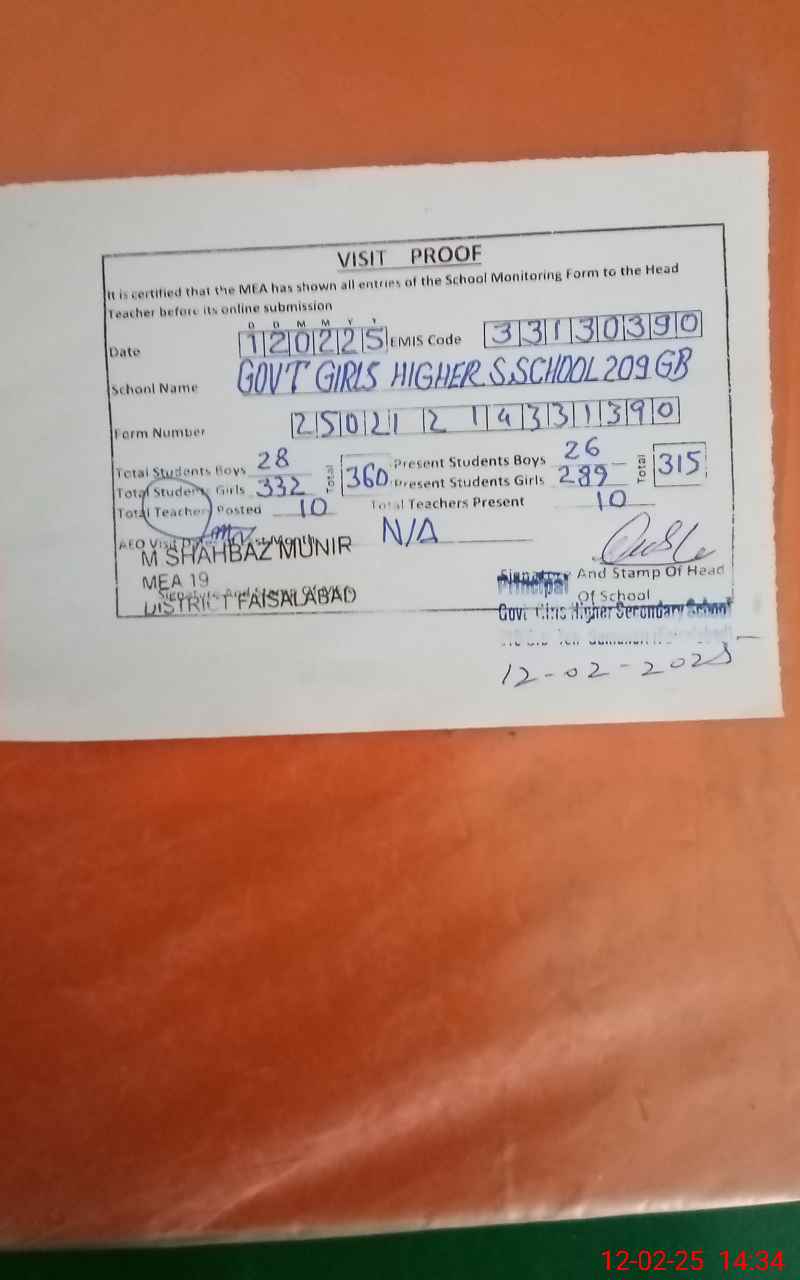 VISIT PROOF
It is certified that the MEA has shown all entries of the School Monitoring Form to the Head
Teacher before its online submission
D D M M Y Y
Date 120225 EMIS Code 33130390
School Name GOVT GIRLS HIGHER S.SCHOOL 209 GB
Form Number 25021214331390
Total Students Boys 28 Present Students Boys 26
Total 360 Total 315
Total Students Girls 332 Present Students Girls 289
Total Teacher Posted 10 Total Teachers Present 10
AEO Visit Month N/A
M SHAHBAZ MUNIR
MEA 19
DISTRICT FAISALABAD
Signature And Stamp Of Head
Principal Of School
Govt Girls Higher Secondary School
12-02-2025
12-02-25 14:34